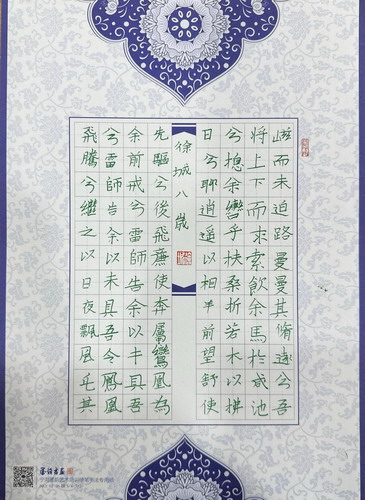 嵫而未迫路曼曼其脩遠兮吾
將上下而求索飲余馬於咸池
兮摠余轡乎扶桑折若木以拂
日兮聊逍遙以相羊前望舒使
徐城八歲
先驅兮後飛廉使奔屬鸞凰為
余前戒兮雷師告余以未具吾
兮雷師告余以未具吾令鳳凰
飛騰兮繼之以日夜飄風屯其